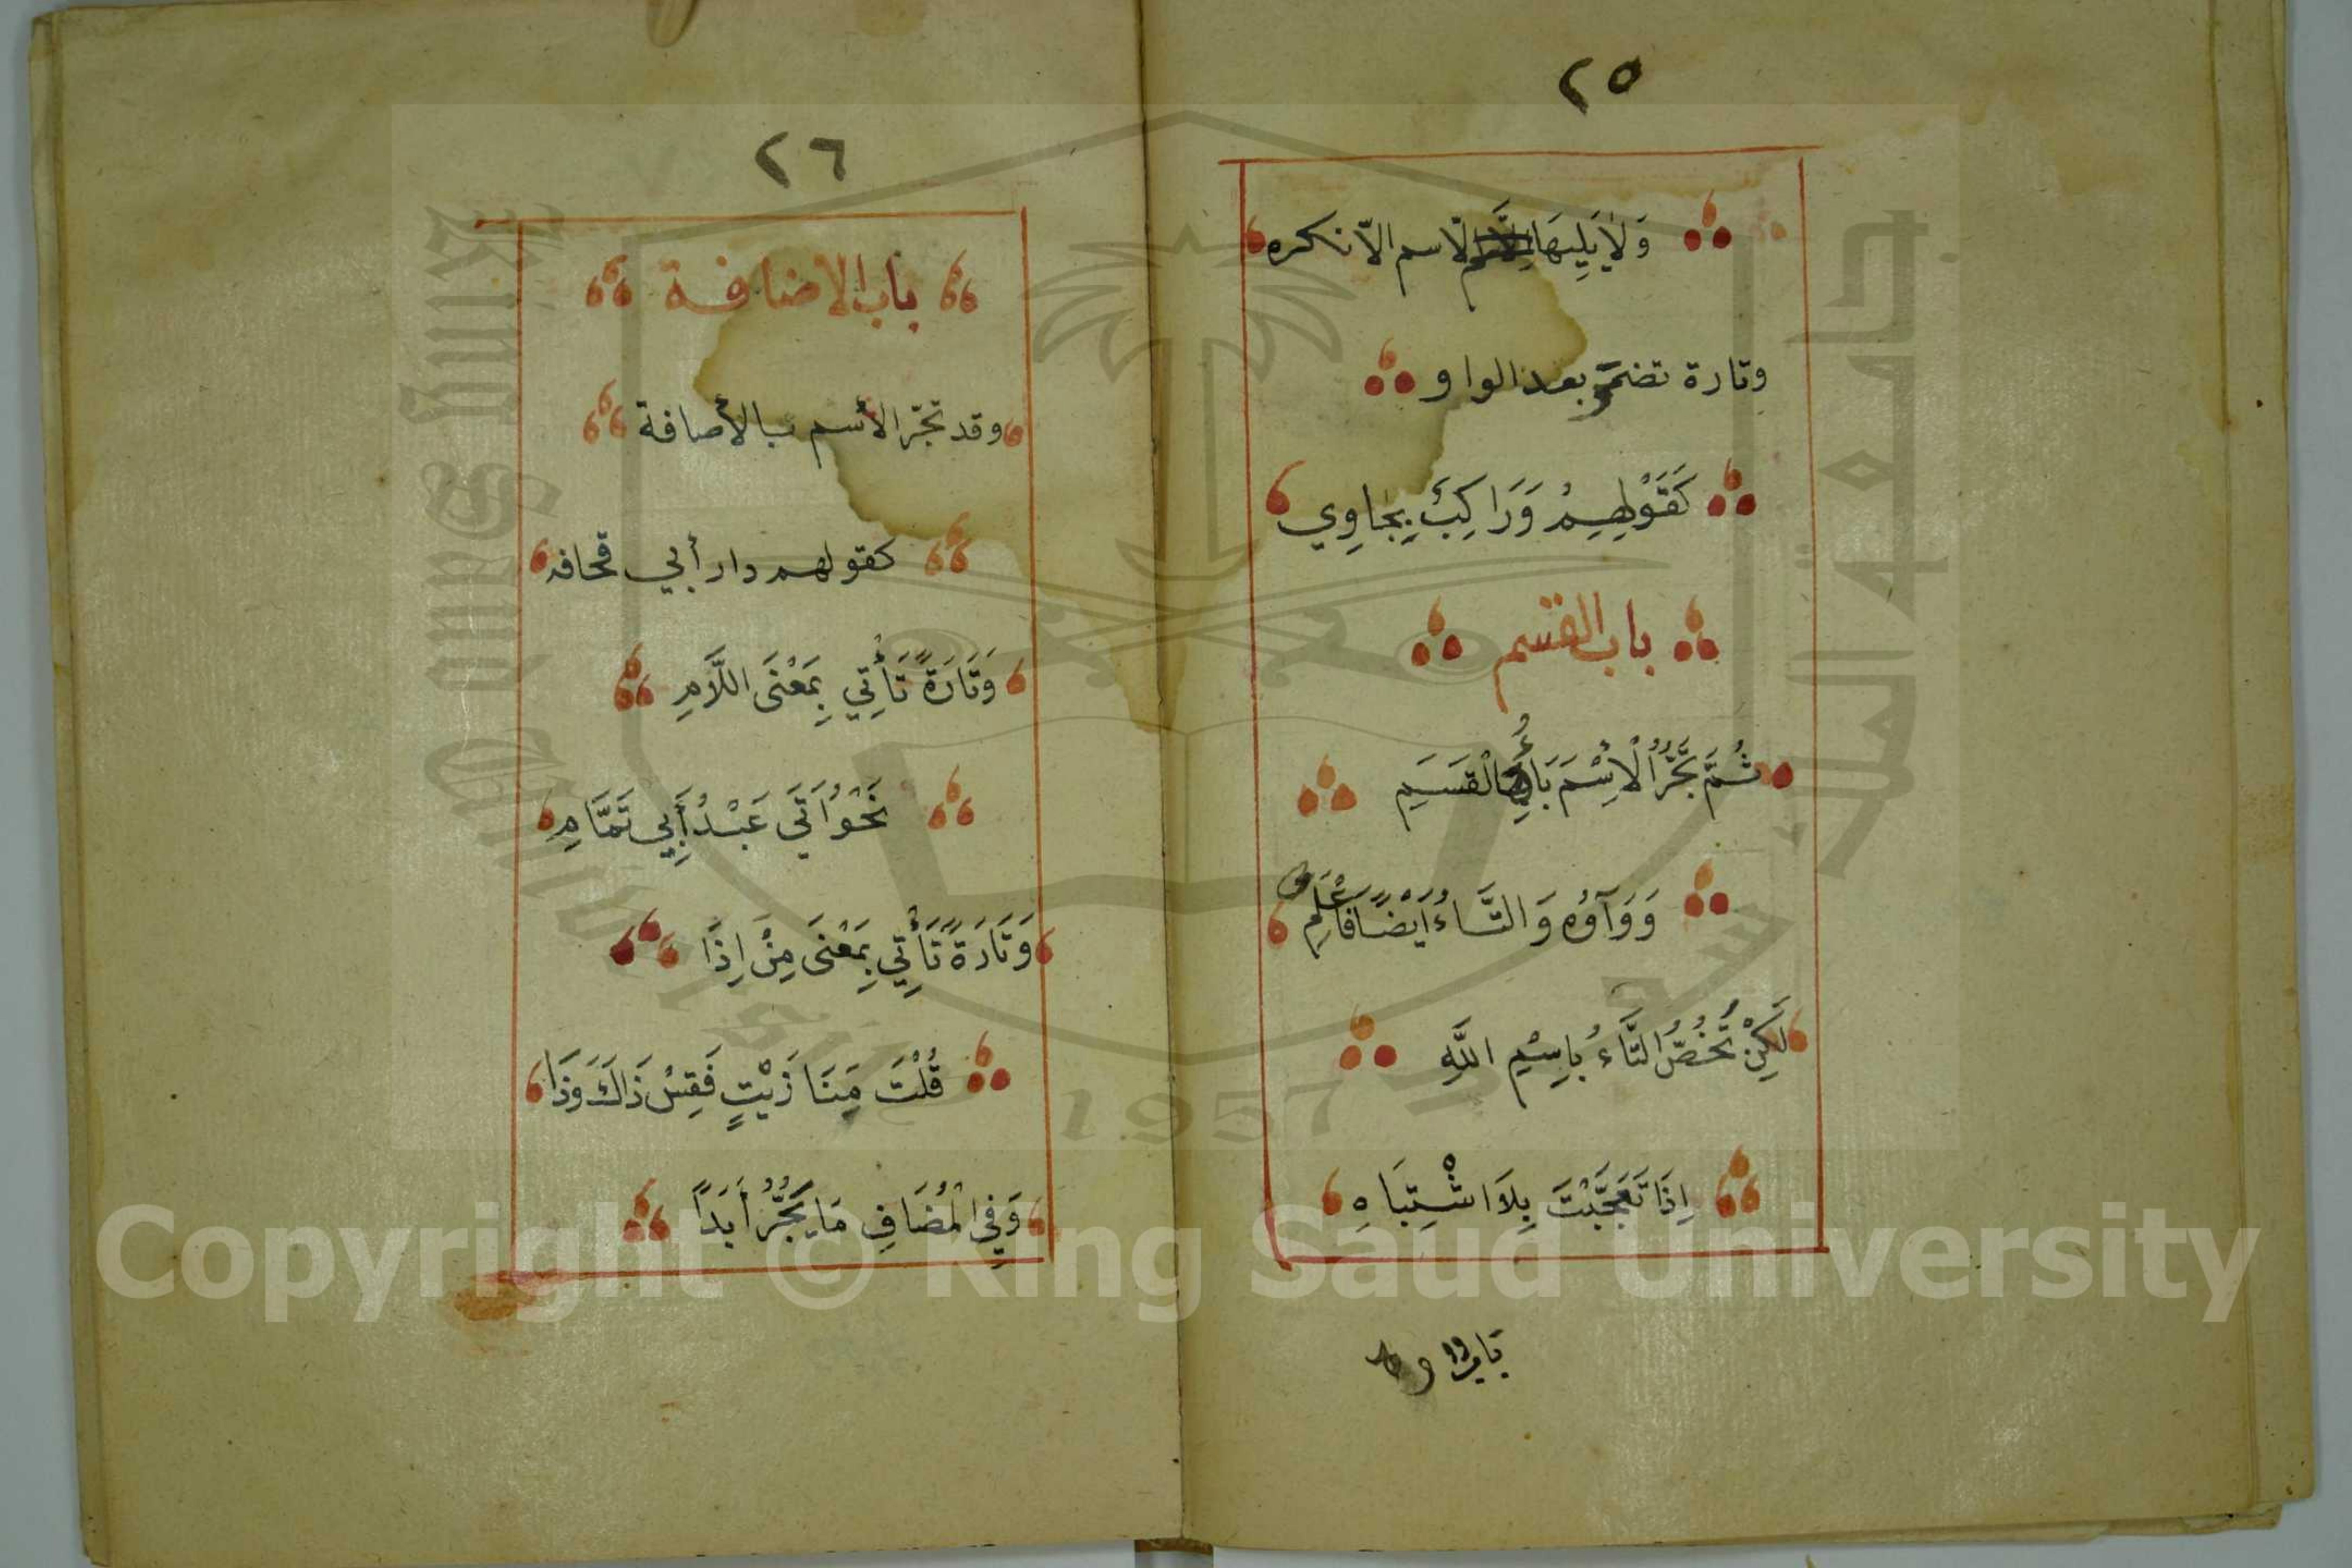 ٢٥
وَلَا يَلِيهَا الاسم الّا نكره
وتارة تضمر بعد الواو
كَقَوْلِهِمْ وَرَاكِبٍ بِجَاوِي
باب القسم
ثُمَّ تَجُرُّ الْاِسْمَ بَاءُ الْقَسَمِ
وَوَآوُه وَالتَّاءُ اَيْضًا فَاعْلَمِ
لَكِنْ تَخُصُّ التَّاءُ بِاِسْمِ اللَّهِ
اِذَا تَعَجَّبْتَ بِلَا اشْتِبَاهِ
باب
٢٦
باب الاضافة
وقد تجّر الأسم بالأصافة
كقولهم دار أبي قحافه
وَتَارَةً تَأْتِي بِمَعْنَى اللَّامِ
نَحْوُ اَتَى عَبْدُ أَبِي تَمَّامِ
وَتَارَةً تَأْتِي بِمَعْنَى مِنْ اِذَا
قُلْتَ مَنَا زَيْتٍ فَقِسْ ذَاكَ وَذَا
وَفِي الْمُضَافِ مَا يَجُرُّ أَبَدًا
King Saud University
جامعة الملك سعود
1957
Copyright © King Saud University